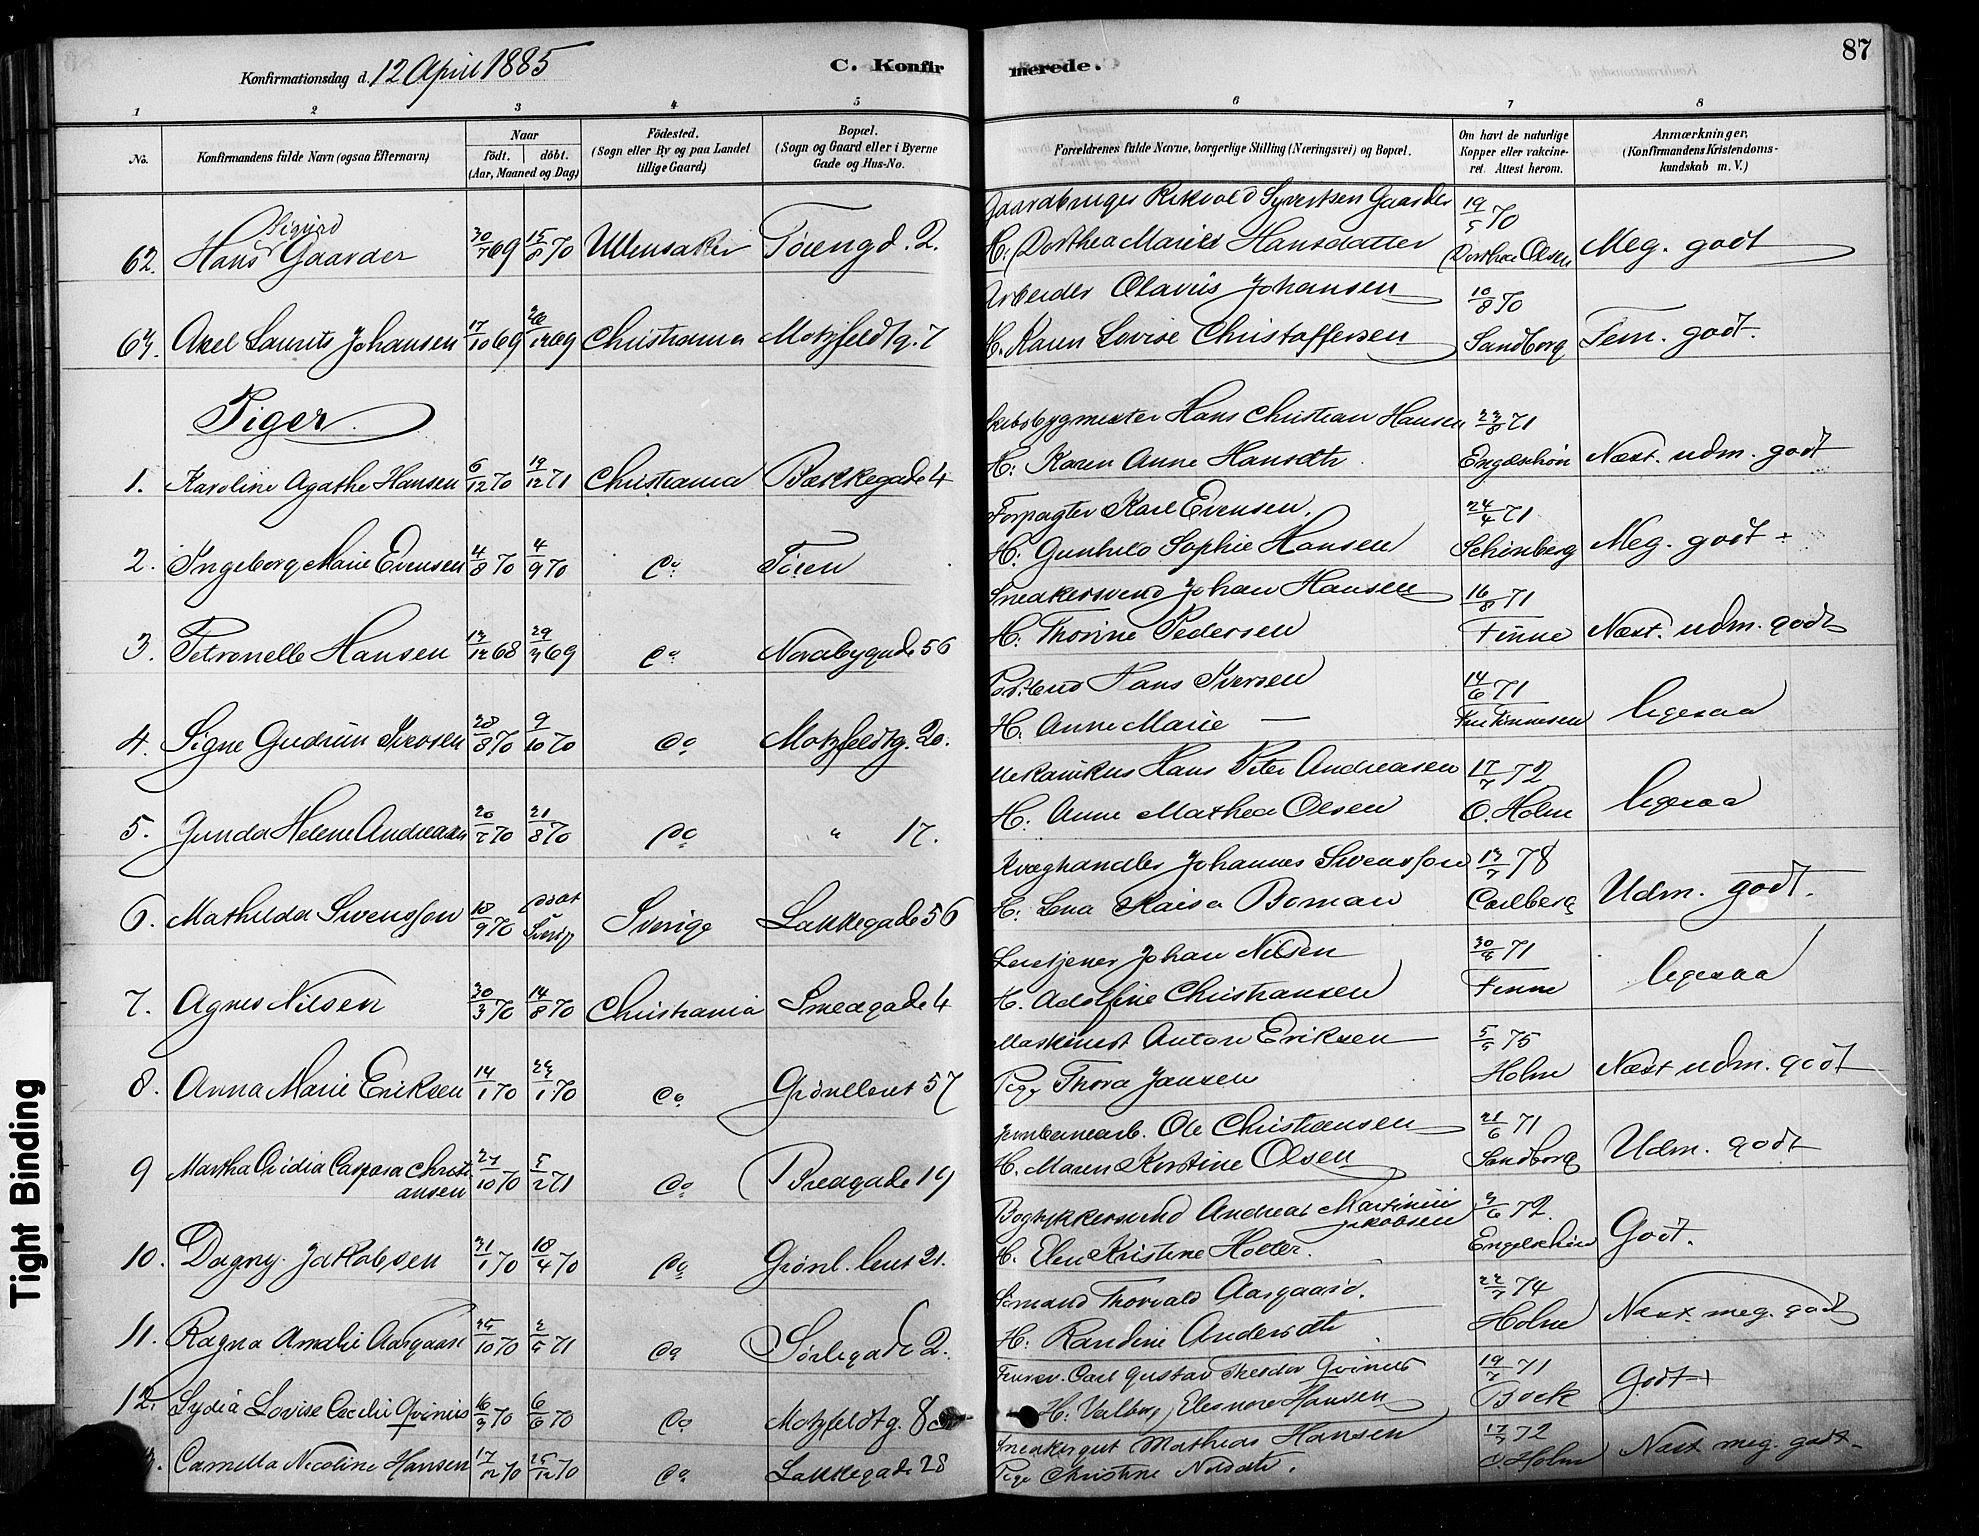 87
Konfirmationsdag d. 12 April 1885
C. Konfirmerede.
1 2 3 4 5 6 7 8
No. Konfirmandens fulde Navn (ogsaa Efternavn) Naar födt. döbt. (Aar, Maaned og Dag) Födested. (Sogn eller By og paa Landet tillige Gaard) Bopæl. (Sogn og Gaard eller i Byerne Gade og Hus-No. Forældrenes fulde Navne, borgerlige Stilling (Næringsvei) og Bopæl. Om havt de naturlige Kopper eller vaccineret. Attest herom. Anmærkninger. (Konfirmandens Kristendomskundskab m. V.)
Gaardbruger Syvertsen Gaarder 19/5 70
62. Hans Sigurd Gaarder 30/7 69 15/8 70 Ullensaker Töiengd. 2. H. Dorthea Marie Hansdatter Dorthea Olsen Meg. godt
Arbeider Olavus Johansen 10/8 70
63. Axel Laurits Johansen 17/10 69 26/12 69 Christiania Motzfeldtg. 7 H. Karen Lovise Christoffersen Sandborg Tem. godt.
Piger.
Skibsbygmester Hans Christian Hansen 23/8 71
1. Karoline Agathe Hansen 6/12 70 19/12 71 Christiania Bakkegade 4 H: Karen Anne Hansdtr. Engelschön Næst. udm. godt
Forpagter Karl Evensen. 24/4 71
2. Ingeborg Marie Evensen 4/8 70 4/9 70 Do Töien H. Gunhild Sophie Hansen Schinberg Meg. godt
Snedkersvend Johan Hansen 16/8 71
3. Petronelle Hansen 13/12 68 29/3 69 Do Nordbygade 56 H: Thorine Pedersen Finne Næst. udm. godt
Postbud Hans Iversen 14/6 71
4. Signe Gudrun Iversen 28/8 70 9/10 70 Do Motzfeldtg. 20. H. Anne Marie — ligesaa
Mekanikus Hans Peter Andreasen 17/7 72
5. Junda Helene Andreasen 20/7 70 21/8 70 Do " 17. H: Anne Mathea Olsen O. Holm ligesaa
Kvæghandler Johannes Swensson 13/7 78
6. Mathilda Swensson 18/9 70 Sverige Lakkegade 56 H: Lena Kaisa Boman Carlberg Udm. godt.
Johan Nilsen 30/8 71
7. Agnes Nilsen 30/3 70 14/8 70 Christiania Smedgade 4 H. Adolfine Christiansen Finne ligesaa
Maskinist Anton Eriksen 5/5 75
8. Anna Marie Eriksen 14/1 70 23/1 70 Do Grönlleret 57 Pige Thora Jansen Holm Næst udm. godt
Jernbanearb. Ole Christiansen 21/6 71
9 Martha Ovidia Caspara Christiansen 27/10 70 5/2 71 Do Bredgade 19 H. Maren Kirstine Olsen Sandborg Udm. godt
Bogtrykkersvend Andreas Martinius Jakobsen 3/6 72.
10. Dagny Jakobsen 31/1 70 18/4 70 Do Grönl. leret 21. H. Elen Kristine Holter. Engelschön Godt.
Sömand Thorvald Aasgaard. 22/7 74
11. Ragna Amalie Aasgaard 25/10 70 2/5 71 Do Sörligade 2. H: Randine Andersdtr Holm Næst. meg. godt
Carl Gustav Theodor Qvinius 19/7 71
12. Lydia Lovise Cecilie Qvinius 16/3 70 6/6 70 Do Motzfeldtg. 8 H: Valborg Eleonore Hansen Bock Godt
Snedkergut Mathias Hansen 17/7 72
Camella Nicoline Hansen 17/12 70 25/12 70 Do Lakkegade 28 Pige Christine Nilsdtr. O. Holm Næst meg. godt
Tight Binding